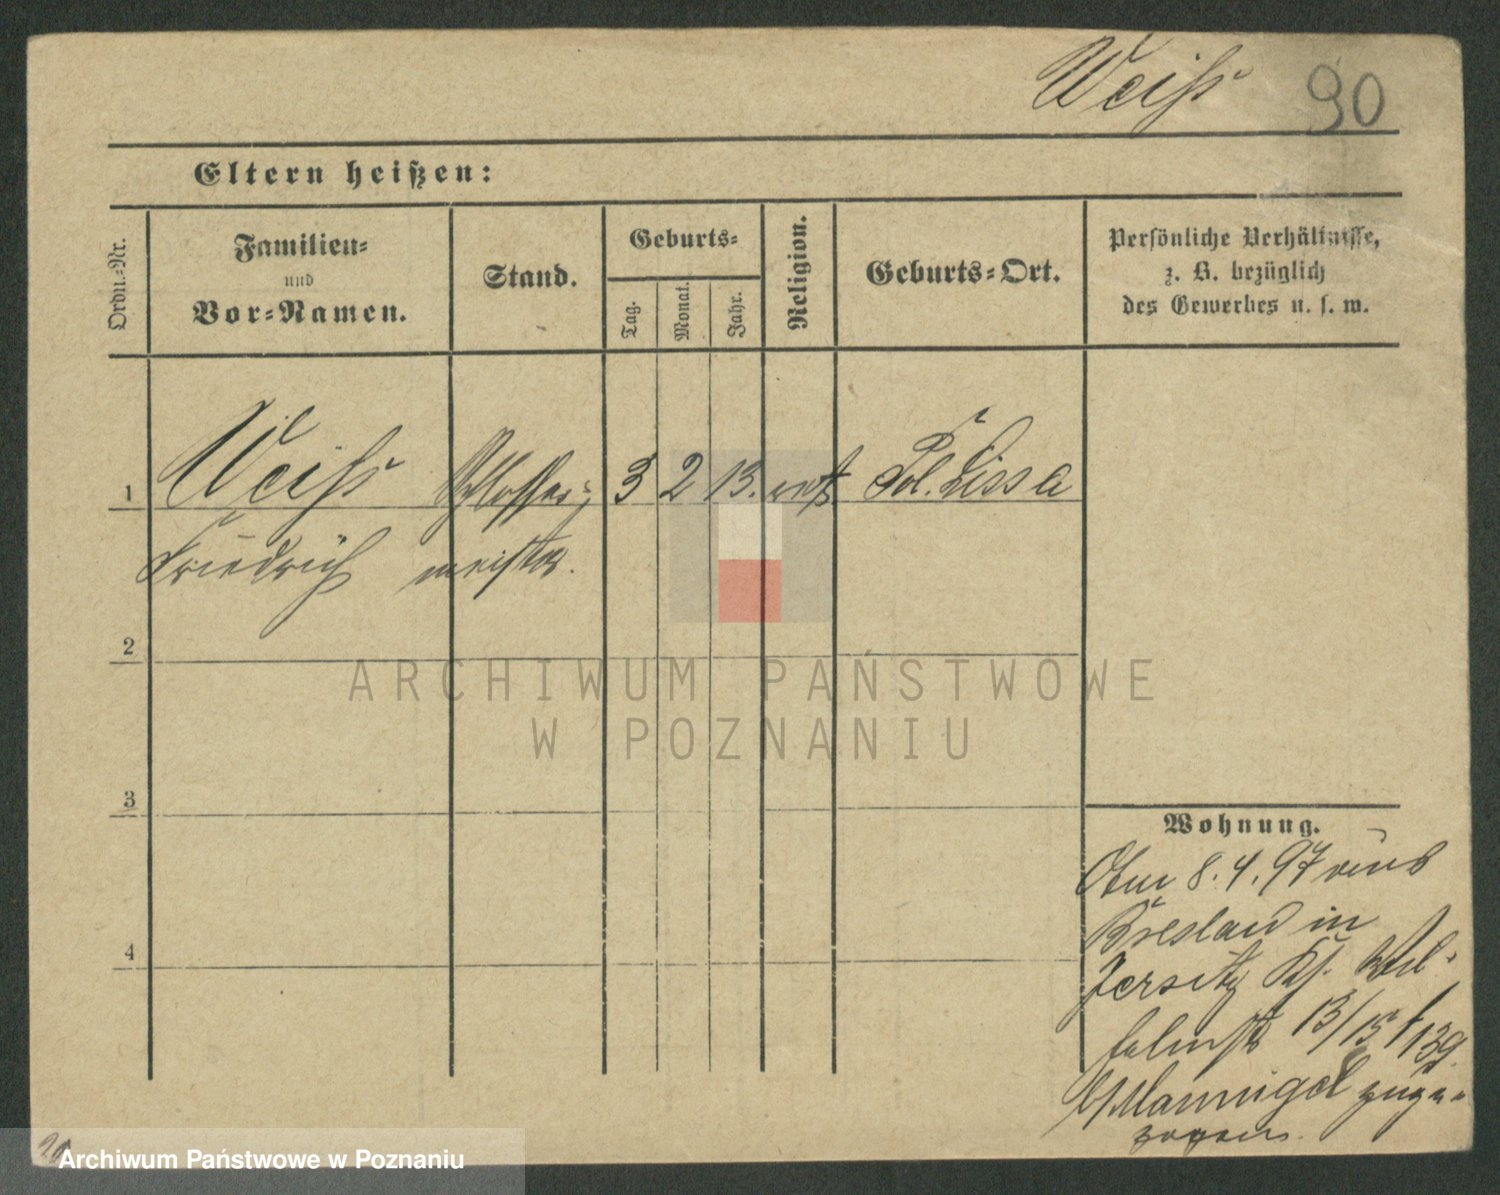 Weiß 90
Eltern heißen:
Ordn.-Nr.
Familien-
und
Vor-Namen.
Stand.
Geburts-
Tag.
Monat.
Jahr.
Religion.
Geburts-Ort.
Persönliche Verhältnisse,
z. B. bezüglich
des Gewerbes u. s. w.
1 Weiß Schlosser- 3 2 13. Pol. Lissa
Friedrich meister.
2
3
4
Wohnung.
8.4.97 von
Breslau in
Jersitz
13/15
b/Mannigel zuge-
zogen.
ARCHIWUM PAŃSTWOWE
W POZNANIU
Archiwum Państwowe w Poznaniu